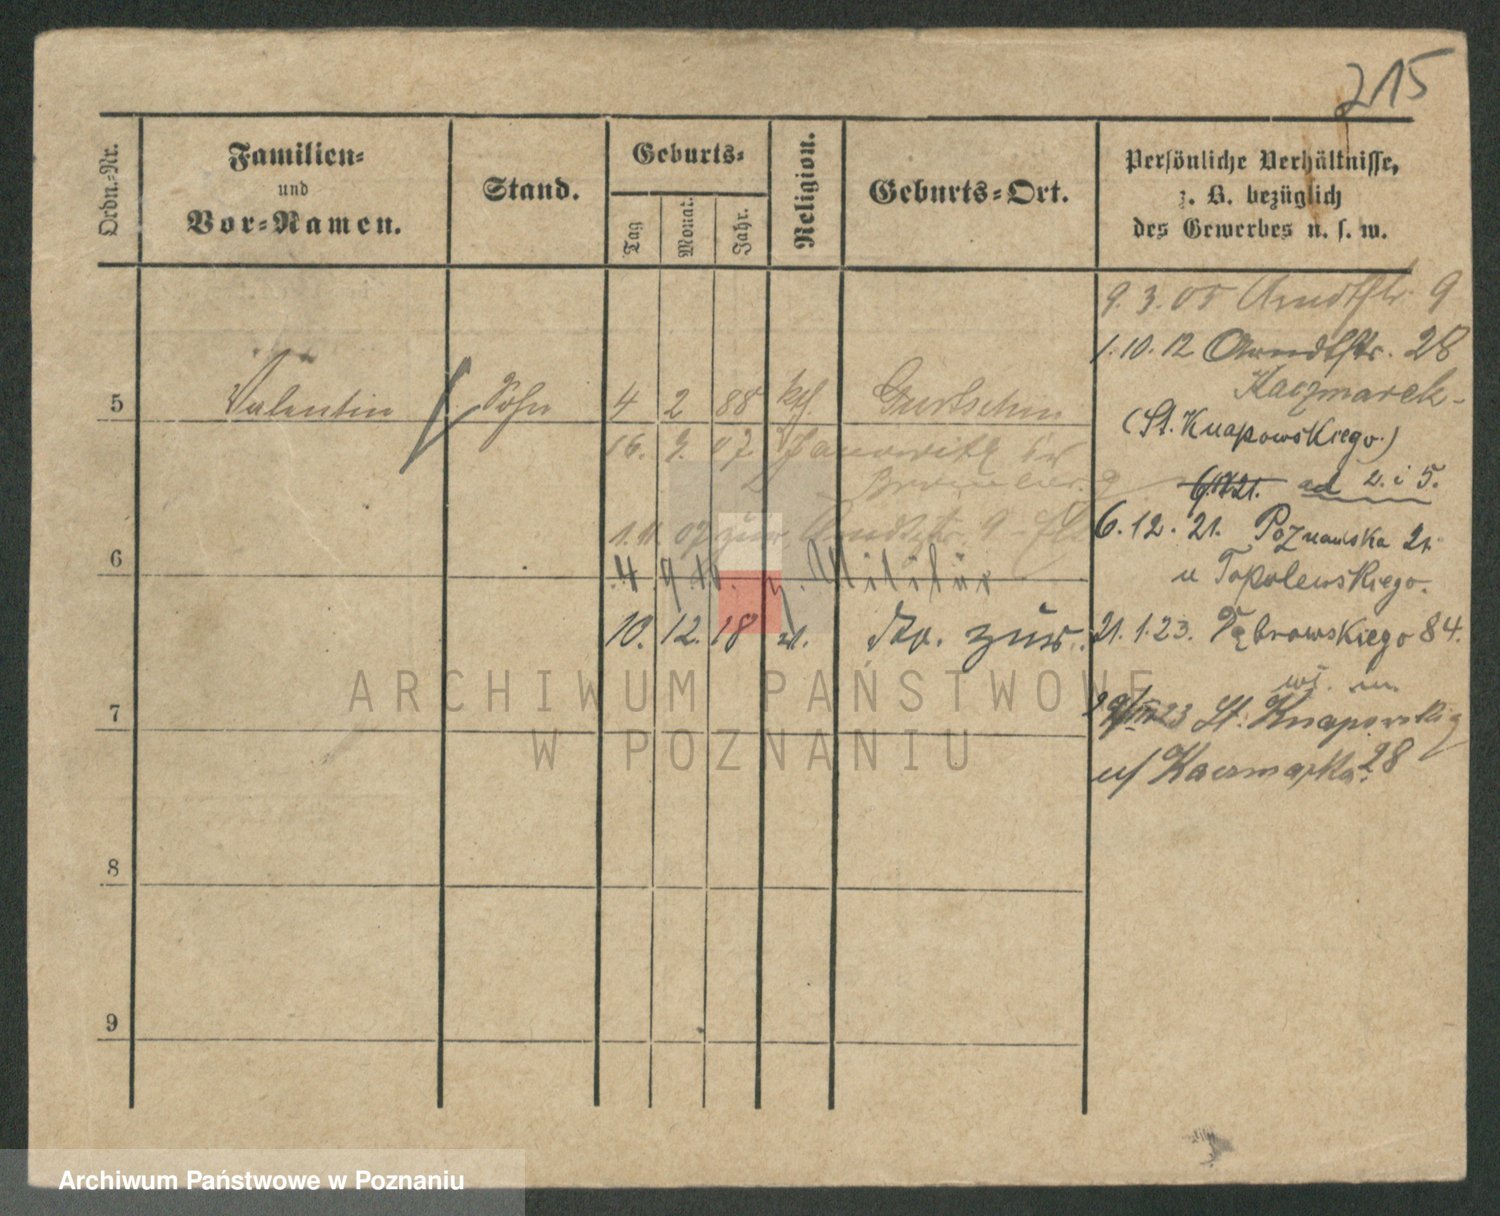 215
Ordn.-Nr.
Familien-
und
Vor-Namen.
Stand.
Geburts-
Tag
Monat.
Jahr.
Religion.
Geburts-Ort.
Persönliche Verhältnisse,
z. B. bezüglich
des Gewerbes u. s. w.
9. 3. 05 Arndtstr. 9
1. 10. 12 Arndtstr. 28
Kaczmarek
5 Valentin Sohn 4 2 88 kath. Gurtschin
(St. Knapowskiego.)
16. 9. 07 Janowitz
ad 2. i 5.
1. 11. 07 zur. Arndtstr. 9
6. 12. 21. Poznańska 21.
6
4. 9. z. Militär
u Topolewskiego.
10. 12. 18 v. do. zur.
21. 1. 23. Dąbrowskiego 84.
23 St. Knapowskiego
7
u/ Kaczmarka 28
8
9
ARCHIWUM PAŃSTWOWE
W POZNANIU
Archiwum Państwowe w Poznaniu